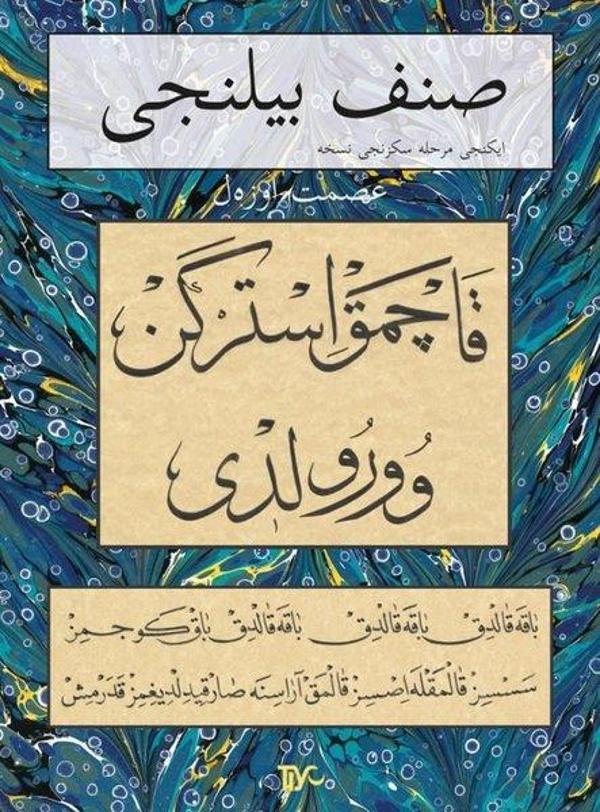 صنف بیلنجی
ایکنجی مرحله سکزنجی نسخه
عصمت اوزەل
قَاچْمَقْ اِسْتَرْكَنْ
وُورُولْدِی
بَاقَه قَالْدِقْ بَاقَه قَالْدِقْ بَاقَه قَالْدِقْ بَاقْ كوجمز
سسسز قالمقله اصسز قالمق آراسنه صارقیدلدیغمز قدرمش